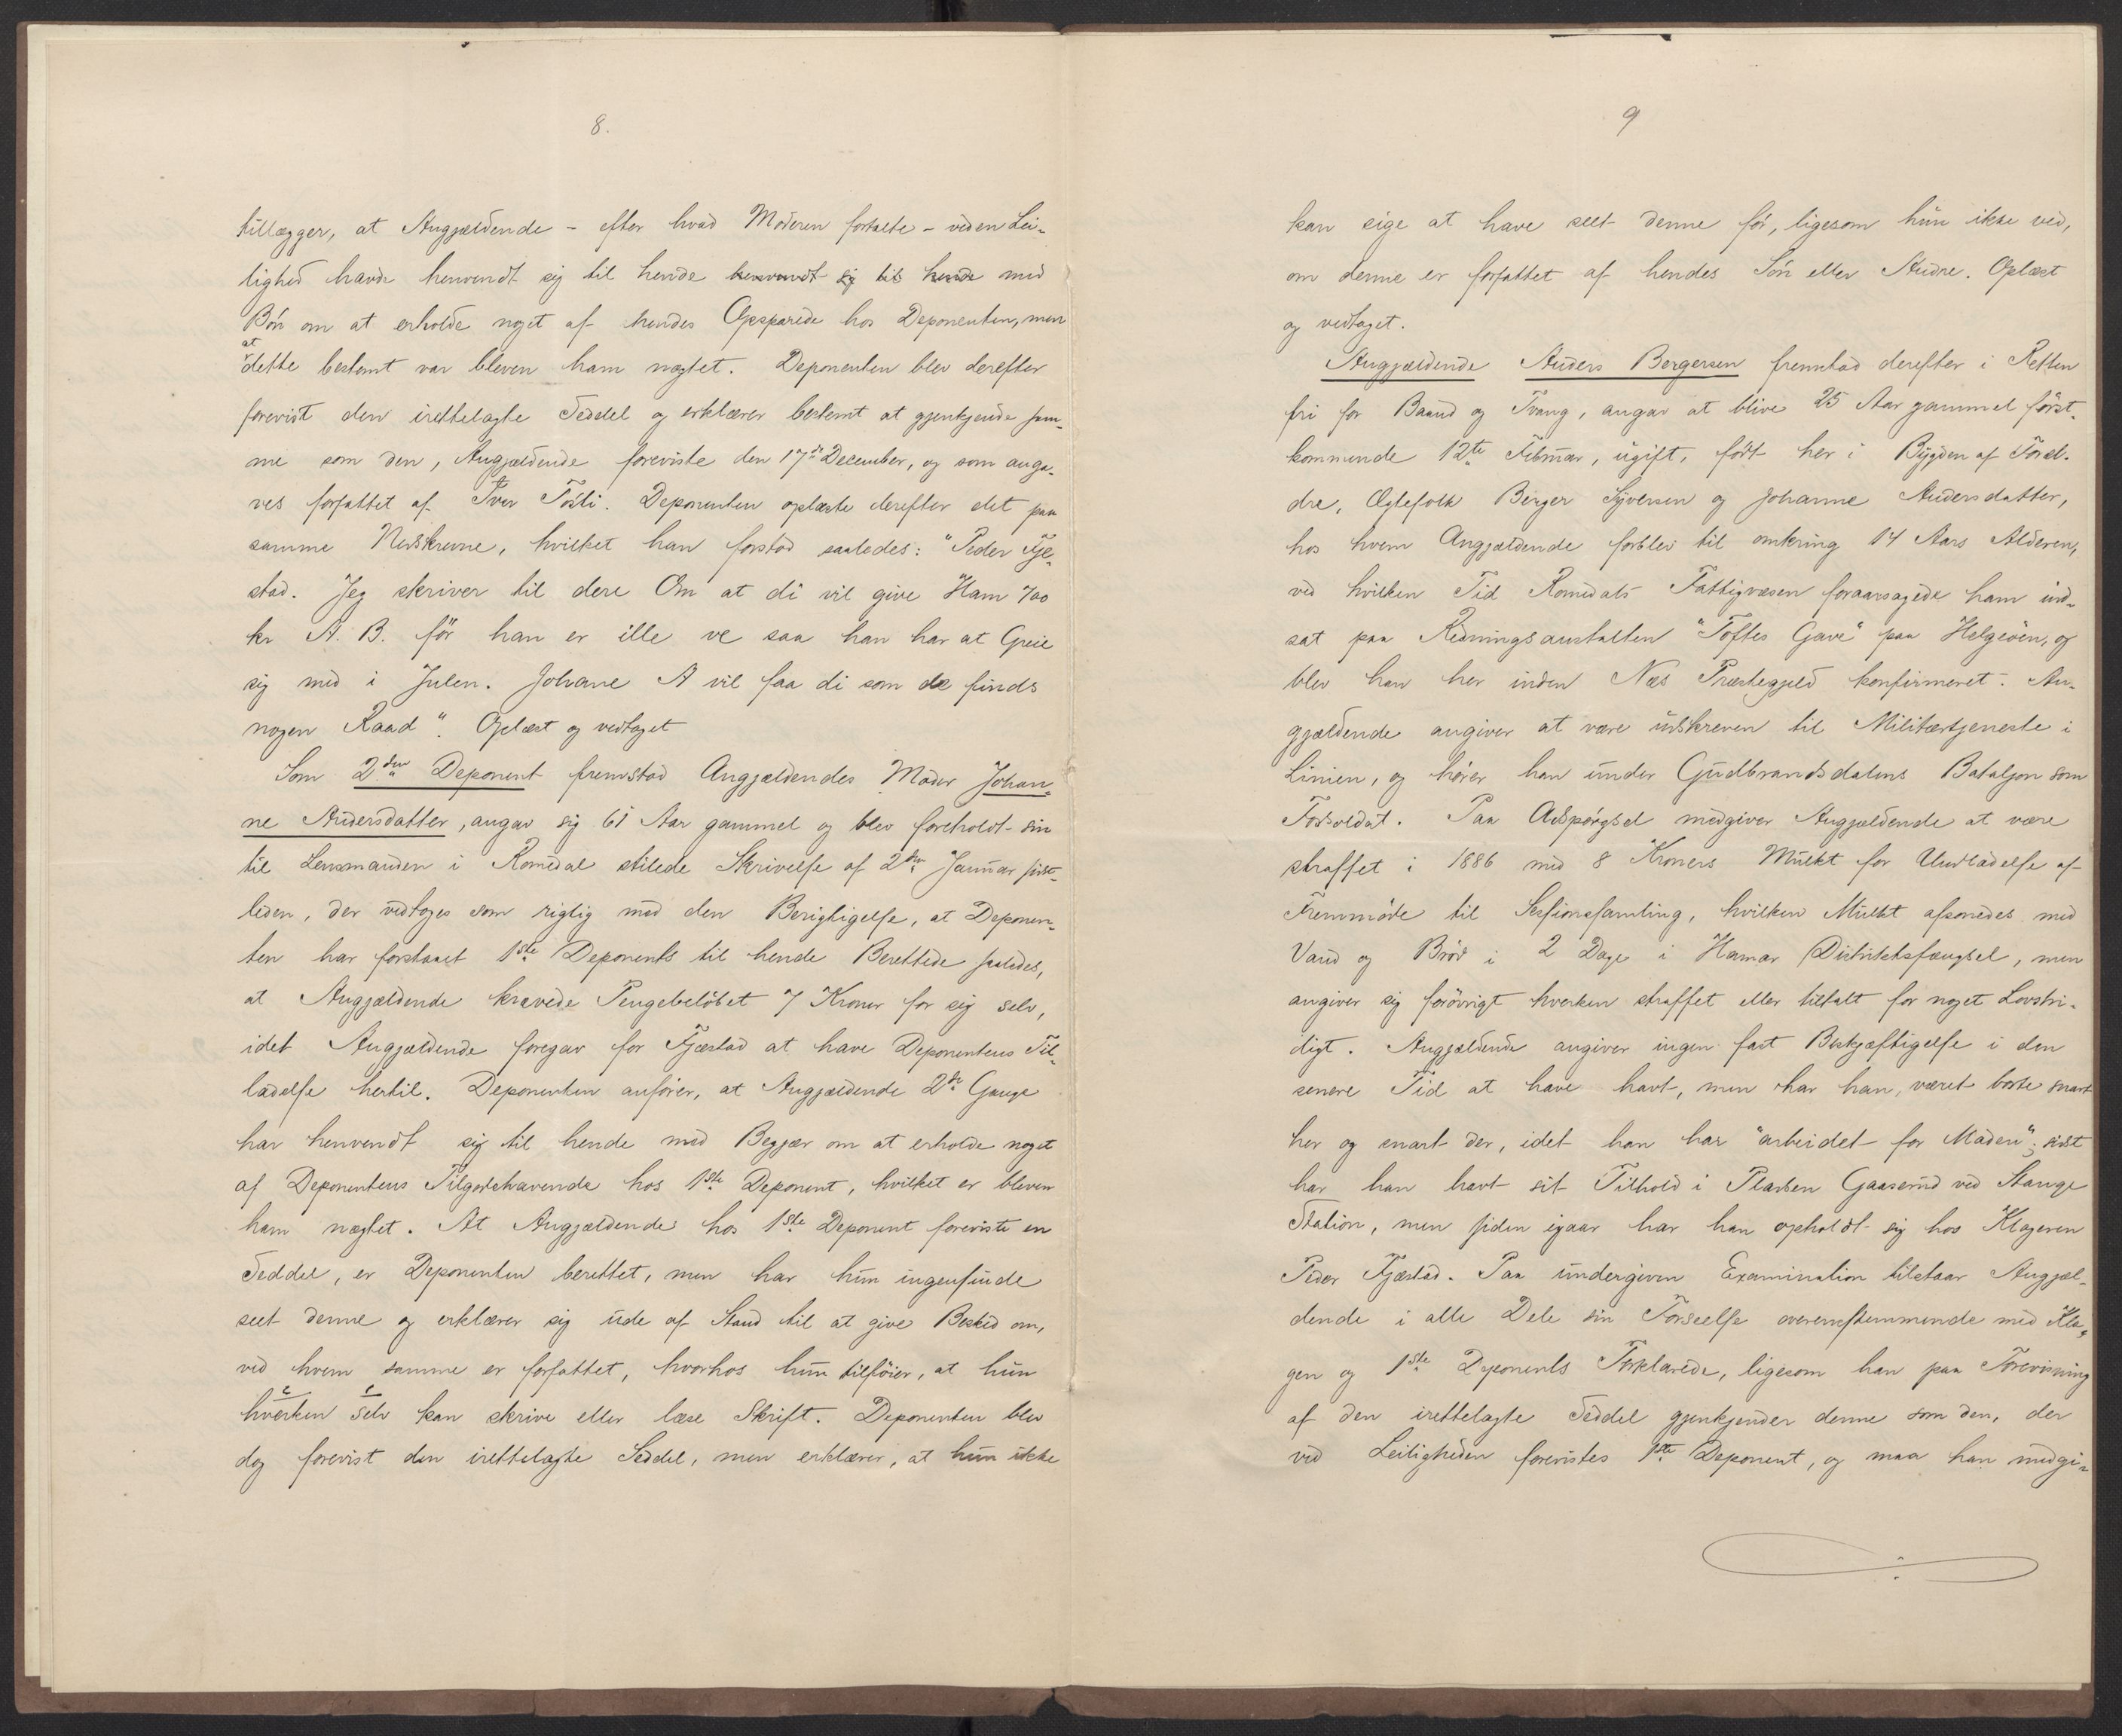 8.
tillægger, at Angjældende - efter hvad Moderen fortalte - ved en Lei-
lighed havde henvendt sig til hende henvendt sig til hende med
Bøn om at erholde noget af hendes Opsparede hos Deponenten, men
at
dette bestemt var bleven ham nægtet. Deponenten blev derefter
forevist den irettelagte Seddel og erklærer bestemt at gjenkjende sam-
me som den, Angjældende foreviste den 17de December, og som anga-
ves forfattet af Iver Tosti. Deponenten oplæste derefter det paa
samme Nedskrevne, hvilket han forstod saaledes: "Peder Fje-
stad. Jeg skriver til dere Om at di vil give Ham 700
kr A. B. før han er ille ve saa han har at Greie
sig med i Julen. Johane A vil faa di som de finds
nogen Raad". Oplæst og vedtaget
Som 2den Deponent fremstod Angjældendes Moder Johan-
ne Andersdatter, angav sig 61 Aar gammel og blev foreholdt sin
til Lensmanden i Romedal stilede Skrivelse af 2den Januar sidst-
leden, der vedtoges som rigtig med den Berigtigelse, at Deponen-
ten har forstaaet 1ste Deponents til hende Berettede saaledes,
at Angjældende krævede Pengebeløbet 7 Kroner for sig selv,
idet Angjældende foregav for Fjæstad at have Deponentens Til-
ladelse hertil. Deponenten anfører, at Angjældende 2de Gange
har henvendt sig til hende med Begjær om at erholde noget
af Deponentens Tilgodehavende hos 1ste Deponent, hvilket er bleven
ham nægtet. At Angjældende hos 1ste Deponent foreviste en
Seddel, er Deponenten berettet, men har hun ingensinde
seet denne og erklærer sig ude af Stand til at give Besked om,
ved hvem samme er forfattet, hvorhos hun tilføier, at hun
hverken selv kan skrive eller læse Skrift. Deponenten blev
dog forevist den irettelagte Seddel, men erklærer, at hun ikke
9
kan sige at have seet denne før, ligesom hun ikke ved,
om denne er forfattet af hendes Søn eller Andre. Oplæst
og vedtaget.
Angjældende Anders Bergersen fremstod derefter i Retten
fri for Baand og Tvang, angav at blive 25 Aar gammel først-
kommende 12te Februar, ugift, født her i Bygden af Foræl-
dre, Ægtefolk Berger Syversen og Johanne Andersdatter,
hos hvem Angjældende forblev til omkring 14 Aars Alderen,
ved hvilken Tid Romedals Fattigvæsen foraarsagede ham ind-
sat paa Redningsanstalten "Toftes Gave" paa Helgeøen, og
blev han her inden Næs Præstegjeld konfirmeret. An-
gjældende angiver at være udskreven til Militærtjeneste i
Linien, og hører han under Gudbrandsdalens Bataljon som
Fodsoldat. Paa Adspørgsel medgiver Angjældende at være
straffet i 1886 med 8 Kroners Mulkt for Undladelse af
Fremmøde til Sessionssamling, hvilken Mulkt afsonedes med
Vand og Brød i 2 Dage i Hamar Distriktsfængsel, men
angiver sig forøvrigt hverken straffet eller tiltalt for noget Lovstri-
digt. Angjældende angiver ingen fast Beskjæftigelse i den
senere Tid at have havt, men har han været borte snart
her og snart der, idet han har "arbeidet for Maden"; sidst
har han havt sit Tilhold i Pladsen Gaaserud ved Stange
Station, men siden igaar har han opholdt sig hos Klageren
Peder Fjæstad. Paa undergiven Examination tilstaar Angjæl-
dende i alle Dele sin Forseelse overensstemmende med Kla-
gen og 1ste Deponents Forklarede, ligesom han paa Forevisning
af den irettelagte Seddel gjenkjender denne som den, der
ved Leiligheden forevistes 1ste Deponent, og maa han medgi-